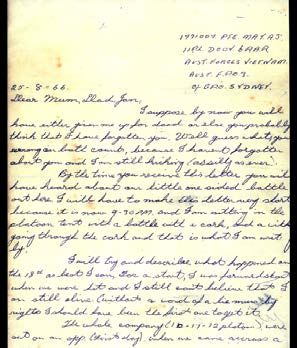 1791007 PTE. MAY. A.J.
11PL D COY 6 RAR
AUST. FORCES VIETNAM.
AUST. F.P.O 7.
C/- G.P.O. SYDNEY.
25-8-66.
Dear Mum, Dad Jan,
I suppose by now you will
have either given me up for dead or else you probably
think that I have forgotten you. Well guess what you
wrong on both count, because I haven't forgotten
about you and I'm still kicking (as silly as ever).
By the time you receive this letter you will
have heard about our little one sided battle
out here. I will have to make this letter very short
because it is now 9-30 PM. and I'm sitting in the
platoon tent with a bottle with a cork, and a wick
going through the cork and that is what I am writing
by.
I will try and describe what happened on
the 18th as best I can. For a start, I was forward scout
when we were hit and I still can't believe that I
am still alive (without a word of a lie mum) by
rights I should have been the first one to get it.
The whole company (10-11-12 platoon) were
out on an opp. (first day) when we came across a